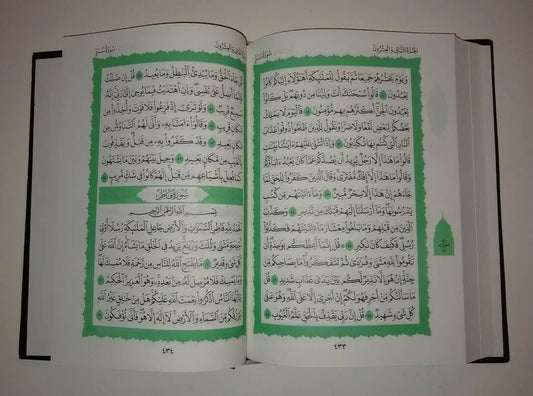 الجُزْءُ الثَّانِي وَالعِشْرُونَ
سُورَةُ سَبَإٍ
وَيَوْمَ يَحْشُرُهُمْ جَمِيعًا ثُمَّ يَقُولُ لِلْمَلَٰٓئِكَةِ أَهَٰٓؤُلَآءِ إِيَّاكُمْ كَانُوا۟
يَعْبُدُونَ ٤٠ قَالُوا۟ سُبْحَٰنَكَ أَنتَ وَلِيُّنَا مِن دُونِهِم بَلْ كَانُوا۟
يَعْبُدُونَ ٱلْجِنَّ أَكْثَرُهُم بِهِم مُّؤْمِنُونَ ٤١ فَٱلْيَوْمَ لَا يَمْلِكُ
بَعْضُكُمْ لِبَعْضٍ نَّفْعًا وَلَا ضَرًّا وَنَقُولُ لِلَّذِينَ ظَلَمُوا۟ ذُوقُوا۟ عَذَابَ
ٱلنَّارِ ٱلَّتِى كُنتُم بِهَا تُكَذِّبُونَ ٤٢ وَإِذَا تُتْلَىٰ عَلَيْهِمْ ءَايَٰتُنَا بَيِّنَٰتٍ
قَالُوا۟ مَا هَٰذَآ إِلَّا رَجُلٌ يُرِيدُ أَن يَصُدَّكُمْ عَمَّا كَانَ يَعْبُدُ ءَابَآؤُكُمْ
وَقَالُوا۟ مَا هَٰذَآ إِلَّآ إِفْكٌ مُّفْتَرًى وَقَالَ ٱلَّذِينَ كَفَرُوا۟ لِلْحَقِّ لَمَّا
جَآءَهُمْ إِنْ هَٰذَآ إِلَّا سِحْرٌ مُّبِينٌ ٤٣ وَمَآ ءَاتَيْنَٰهُم مِّن كُتُبٍ
يَدْرُسُونَهَا وَمَآ أَرْسَلْنَآ إِلَيْهِمْ قَبْلَكَ مِن نَّذِيرٍ ٤٤ وَكَذَّبَ
ٱلَّذِينَ مِن قَبْلِهِمْ وَمَا بَلَغُوا۟ مِعْشَارَ مَآ ءَاتَيْنَٰهُمْ فَكَذَّبُوا۟
رُسُلِى فَكَيْفَ كَانَ نَكِيرِ ٤٥ قُلْ إِنَّمَآ أَعِظُكُم بِوَٰحِدَةٍ أَن
تَقُومُوا۟ لِلَّهِ مَثْنَىٰ وَفُرَٰدَىٰ ثُمَّ تَتَفَكَّرُوا۟ مَا بِصَاحِبِكُم مِّن
جِنَّةٍ إِنْ هُوَ إِلَّا نَذِيرٌ لَّكُم بَيْنَ يَدَىْ عَذَابٍ شَدِيدٍ ٤٦ قُلْ
مَا سَأَلْتُكُم مِّنْ أَجْرٍ فَهُوَ لَكُمْ إِنْ أَجْرِىَ إِلَّا عَلَى ٱللَّهِ وَهُوَ عَلَىٰ
كُلِّ شَىْءٍ شَهِيدٌ ٤٧ قُلْ إِنَّ رَبِّى يَقْذِفُ بِٱلْحَقِّ عَلَّٰمُ ٱلْغُيُوبِ ٤٨
٤٣٣
الجُزْءُ الثَّانِي وَالعِشْرُونَ
سُورَةُ سَبَإٍ
قُلْ جَآءَ ٱلْحَقُّ وَمَا يُبْدِئُ ٱلْبَٰطِلُ وَمَا يُعِيدُ ٤٩ قُلْ إِن ضَلَلْتُ
فَإِنَّمَآ أَضِلُّ عَلَىٰ نَفْسِى وَإِنِ ٱهْتَدَيْتُ فَبِمَا يُوحِىٓ إِلَىَّ رَبِّىٓ إِنَّهُۥ
سَمِيعٌ قَرِيبٌ ٥٠ وَلَوْ تَرَىٰٓ إِذْ فَزِعُوا۟ فَلَا فَوْتَ وَأُخِذُوا۟ مِن
مَّكَانٍ قَرِيبٍ ٥١ وَقَالُوٓا۟ ءَامَنَّا بِهِۦ وَأَنَّىٰ لَهُمُ ٱلتَّنَاوُشُ مِن
مَّكَانٍۭ بَعِيدٍ ٥٢ وَقَدْ كَفَرُوا۟ بِهِۦ مِن قَبْلُ وَيَقْذِفُونَ
بِٱلْغَيْبِ مِن مَّكَانٍۭ بَعِيدٍ ٥٣ وَحِيلَ بَيْنَهُمْ وَبَيْنَ مَا يَشْتَهُونَ
كَمَا فُعِلَ بِأَشْيَاعِهِم مِّن قَبْلُ إِنَّهُمْ كَانُوا۟ فِى شَكٍّ مُّرِيبٍۭ ٥٤
سُورَةُ فَاطِرٍ
بِسْمِ ٱللَّهِ ٱلرَّحْمَٰنِ ٱلرَّحِيمِ
ٱلْحَمْدُ لِلَّهِ فَاطِرِ ٱلسَّمَٰوَٰتِ وَٱلْأَرْضِ جَاعِلِ ٱلْمَلَٰٓئِكَةِ رُسُلًا أُو۟لِىٓ
أَجْنِحَةٍ مَّثْنَىٰ وَثُلَٰثَ وَرُبَٰعَ يَزِيدُ فِى ٱلْخَلْقِ مَا يَشَآءُ إِنَّ ٱللَّهَ عَلَىٰ
كُلِّ شَىْءٍ قَدِيرٌ ١ مَّا يَفْتَحِ ٱللَّهُ لِلنَّاسِ مِن رَّحْمَةٍ فَلَا مُمْسِكَ لَهَا
وَمَا يُمْسِكْ فَلَا مُرْسِلَ لَهُۥ مِنۢ بَعْدِهِۦ وَهُوَ ٱلْعَزِيزُ ٱلْحَكِيمُ ٢
يَٰٓأَيُّهَا ٱلنَّاسُ ٱذْكُرُوا۟ نِعْمَتَ ٱللَّهِ عَلَيْكُمْ هَلْ مِنْ خَٰلِقٍ غَيْرُ ٱللَّهِ
يَرْزُقُكُم مِّنَ ٱلسَّمَآءِ وَٱلْأَرْضِ لَآ إِلَٰهَ إِلَّا هُوَ فَأَنَّىٰ تُؤْفَكُونَ ٣
٤٣٤